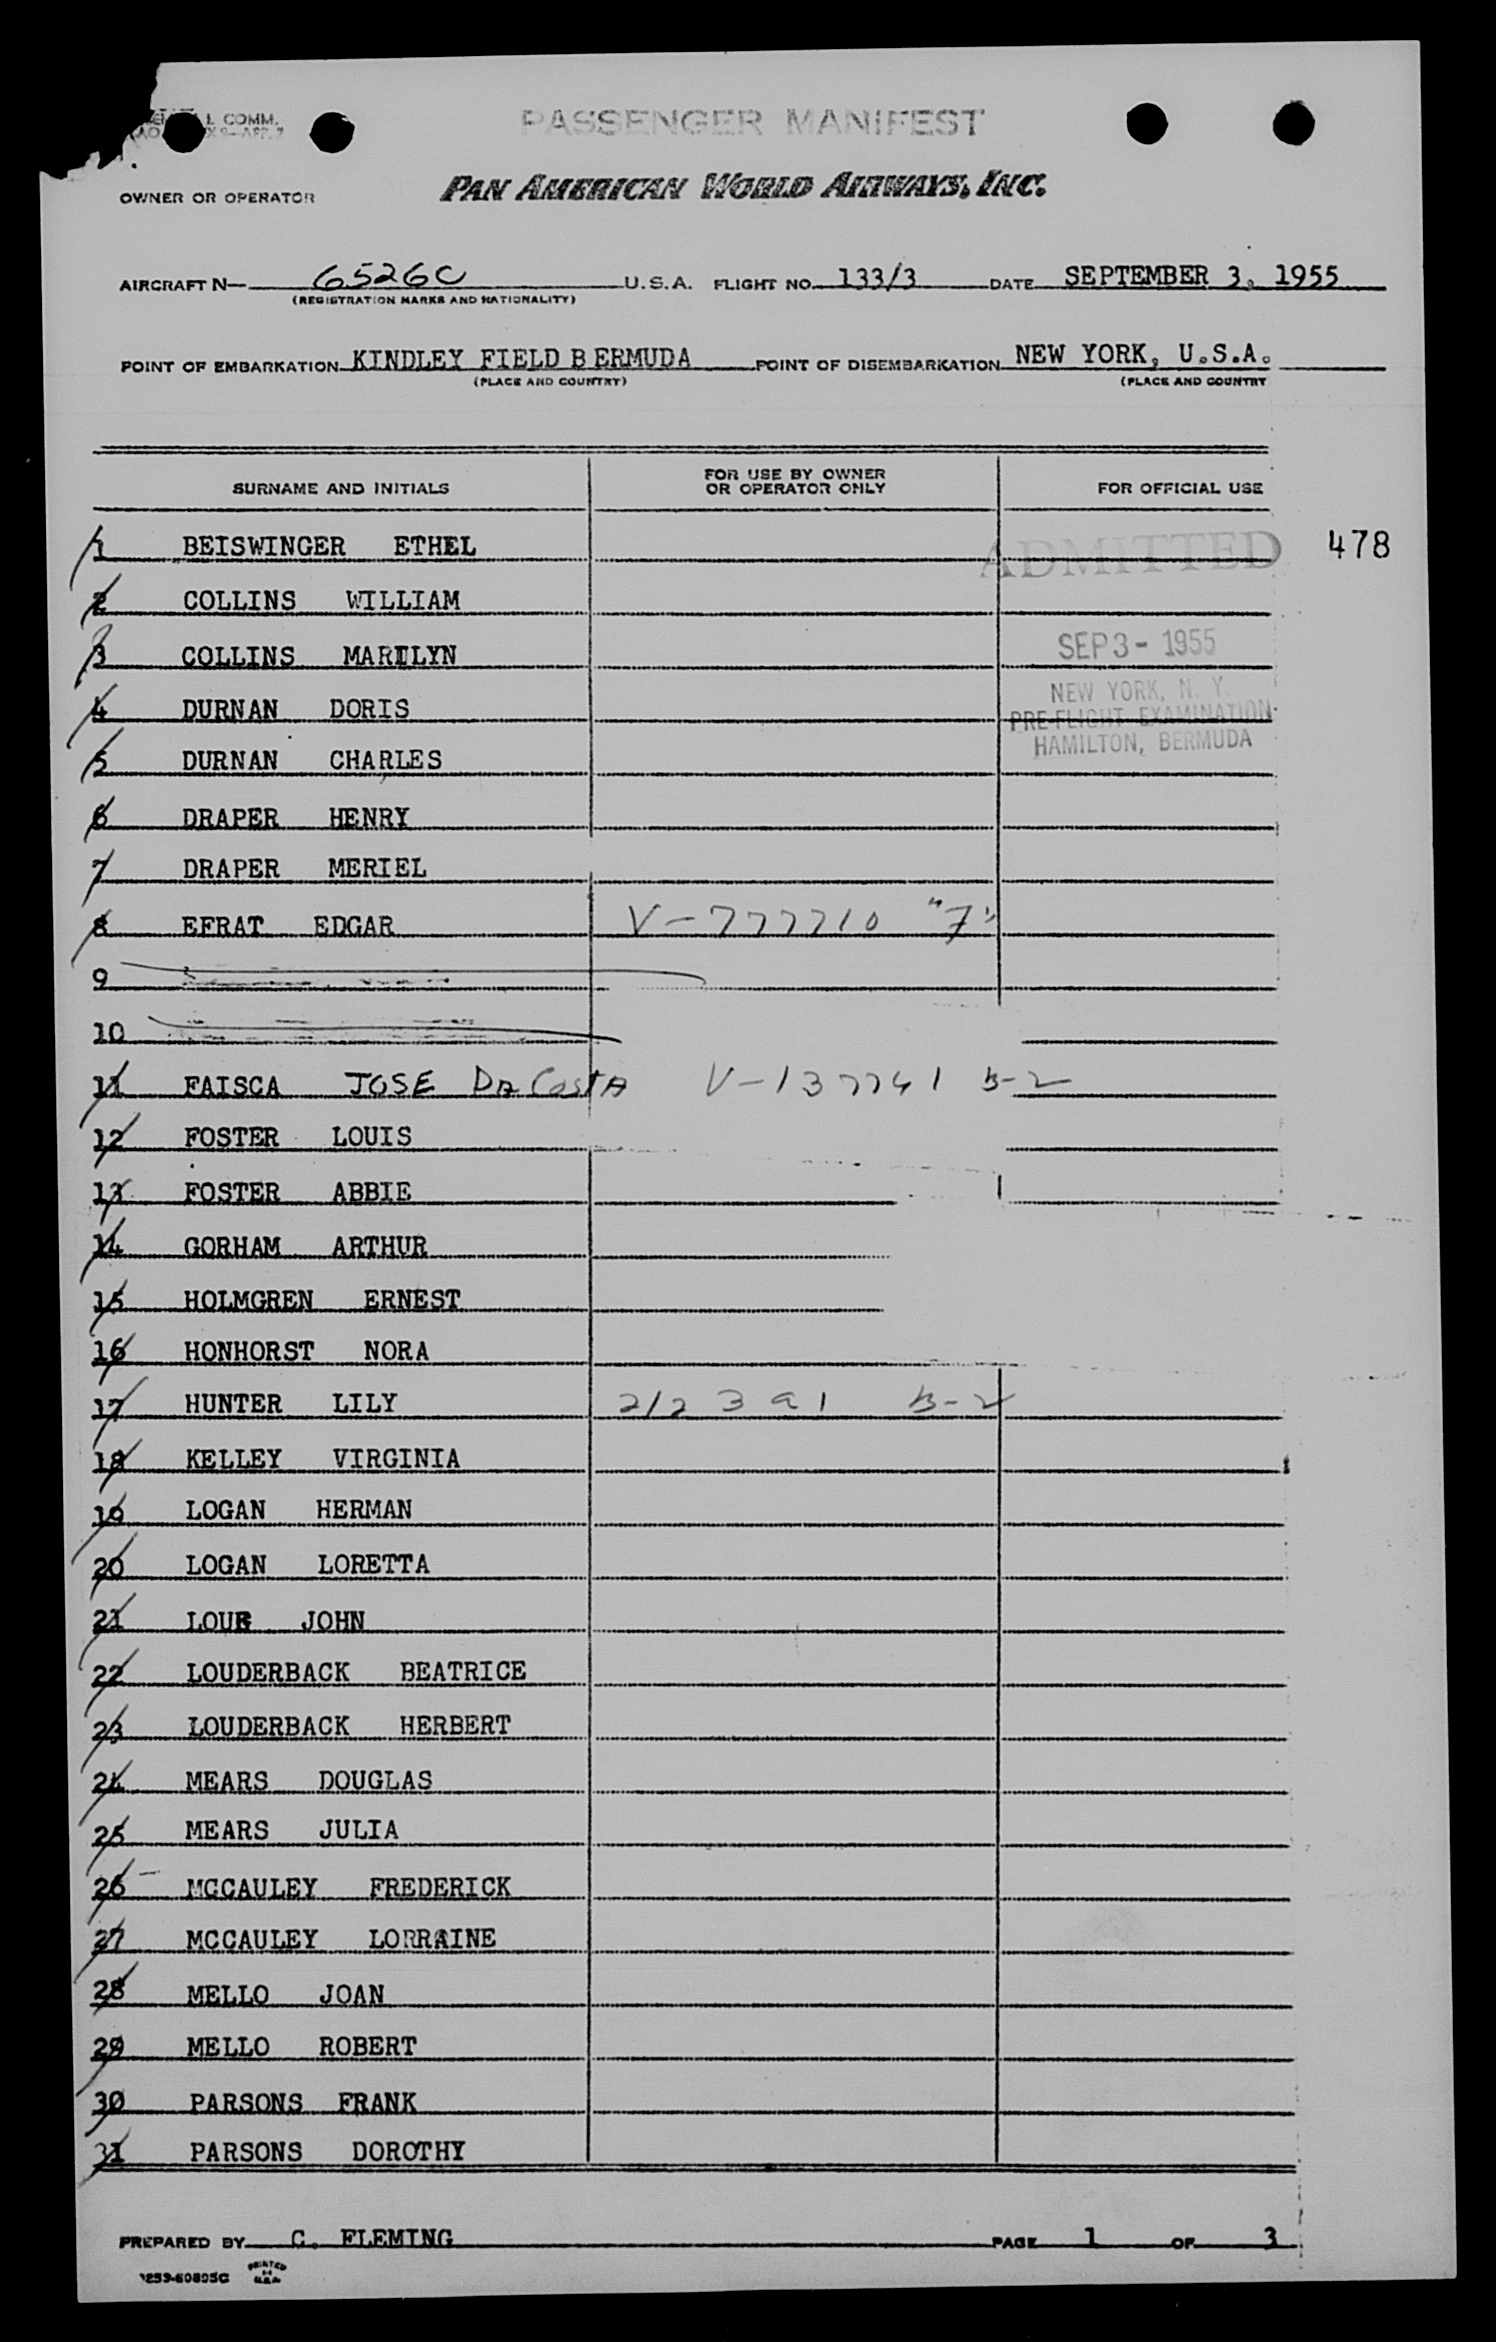 L COMM.
PASSENGER MANIFEST
OWNER OR OPERATOR PAN AMERICAN WORLD AIRWAYS, INC.
AIRCRAFT N— 6526C U.S.A. FLIGHT NO. 133/3 DATE SEPTEMBER 3, 1955
(REGISTRATION MARKS AND NATIONALITY)
POINT OF EMBARKATION KINDLEY FIELD B ERMUDA POINT OF DISEMBARKATION NEW YORK, U.S.A.
(PLACE AND COUNTRY) (PLACE AND COUNTRY
SURNAME AND INITIALS FOR USE BY OWNER OR OPERATOR ONLY FOR OFFICIAL USE
1 BEISWINGER ETHEL ADMITTED 478
2 COLLINS WILLIAM
3 COLLINS MARILYN SEP 3 - 1955
4 DURNAN DORIS NEW YORK, N. Y.
PRE-FLIGHT EXAMINATION
5 DURNAN CHARLES HAMILTON, BERMUDA
6 DRAPER HENRY
7 DRAPER MERIEL
8 EFRAT EDGAR V-777710 "7"
9
10
11 FAISCA JOSE DA COSTA V-137741 B-2
12 FOSTER LOUIS
13 FOSTER ABBIE
14 GORHAM ARTHUR
15 HOLMGREN ERNEST
16 HONHORST NORA
17 HUNTER LILY 212391 B-2
18 KELLEY VIRGINIA
19 LOGAN HERMAN
20 LOGAN LORETTA
21 LOUR JOHN
22 LOUDERBACK BEATRICE
23 LOUDERBACK HERBERT
24 MEARS DOUGLAS
25 MEARS JULIA
26 MCCAULEY FREDERICK
27 MCCAULEY LORRAINE
28 MELLO JOAN
29 MELLO ROBERT
30 PARSONS FRANK
31 PARSONS DOROTHY
PREPARED BY C. FLEMING PAGE 1 OF 3
PRINTED IN U.S.A.